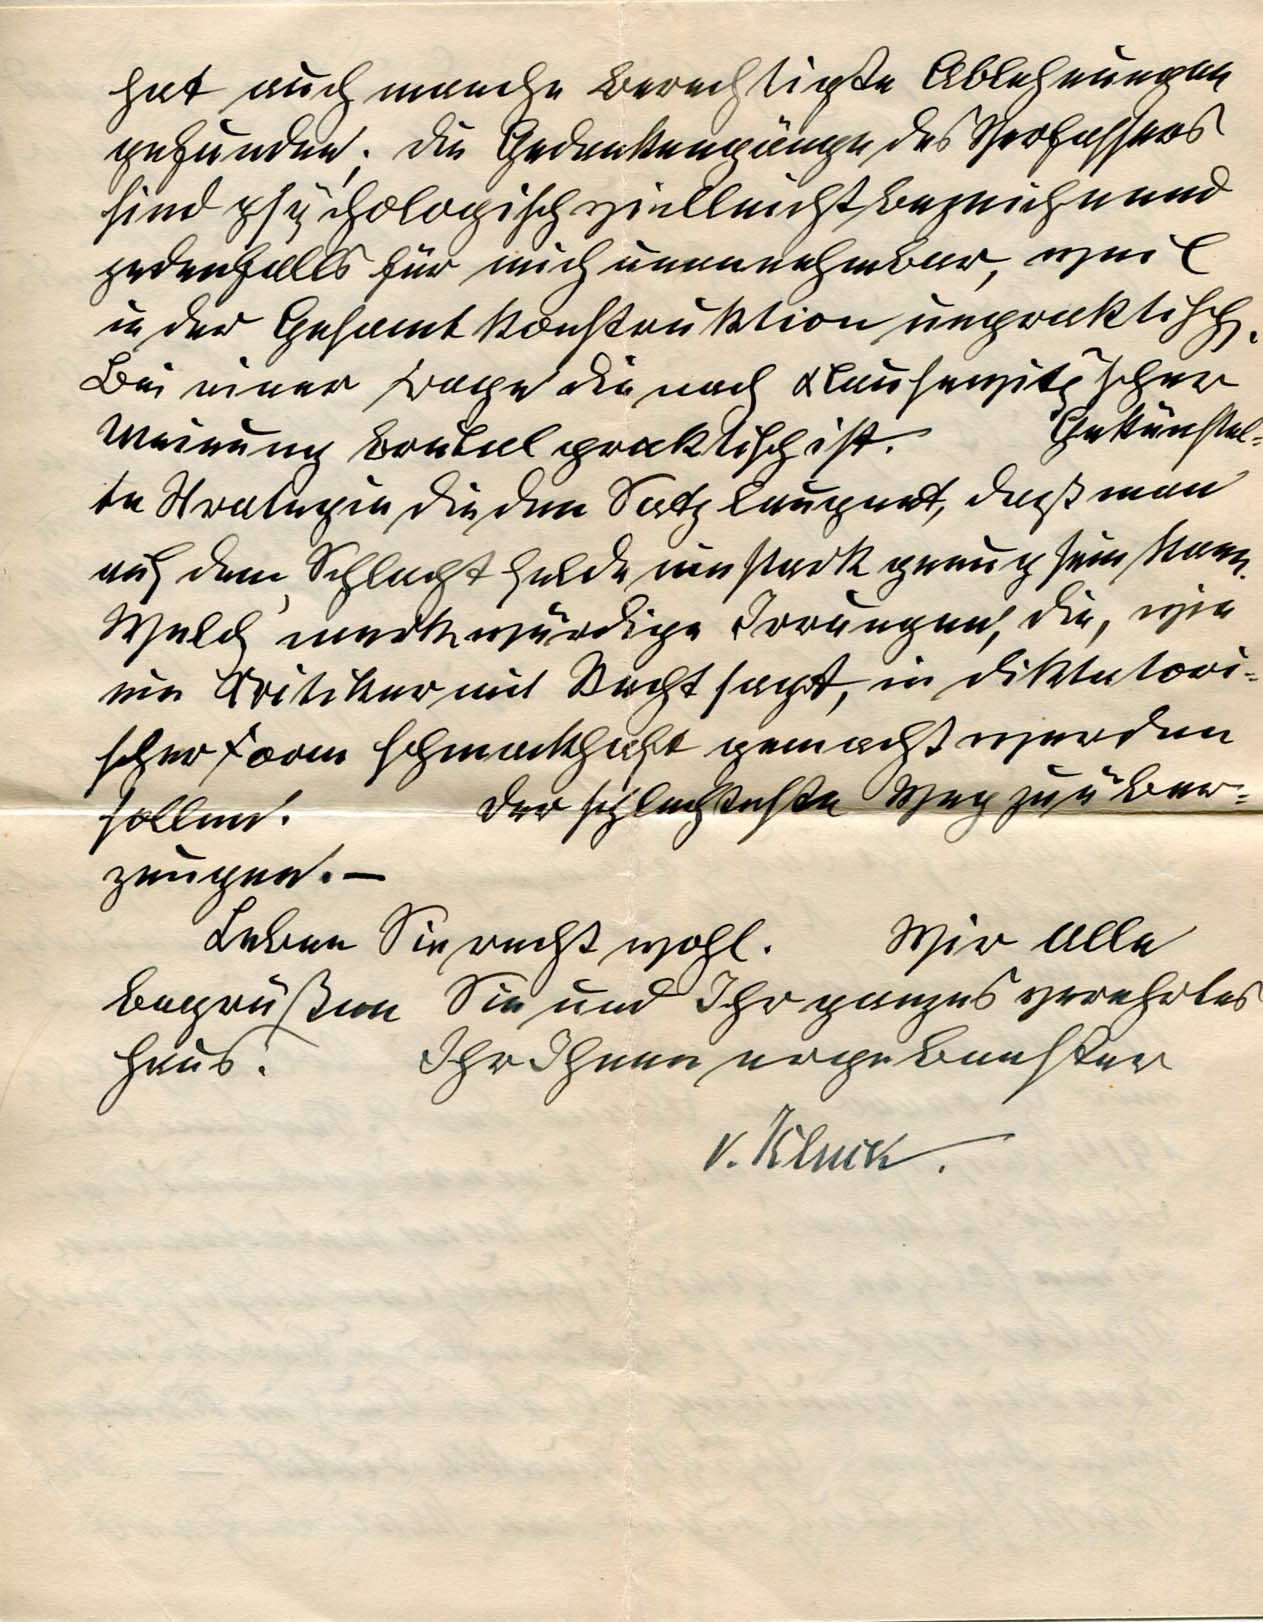 hat auch manche berechtigte Ablehnungen
gefunden; die Gedankengänge des Verfassers
sind psychologisch vielleicht bezeichnend
jedenfalls für mich unannehmbar, weil
in der Gesamtkonstruktion unpraktisch.
Bei einer Frage die nach Klausewitz'scher
Meinung brutal praktisch ist. Gekünstel-
te Strategie die den Satz leugnet, daß man
auf dem Schlachtfelde nie stark genug sein kann.
Welch merkwürdige Irrungen, die, wie
ein Kritiker mit Recht sagt, in diktatori-
scher Form schmackhaft gemacht werden
sollen. Der schlechteste Weg zu über-
zeugen. —
Leben Sie recht wohl. Wir alle
begrüßen Sie und Ihr ganzes verehrtes
Haus. Ihr Ihnen ergebenster
v. Kluck.